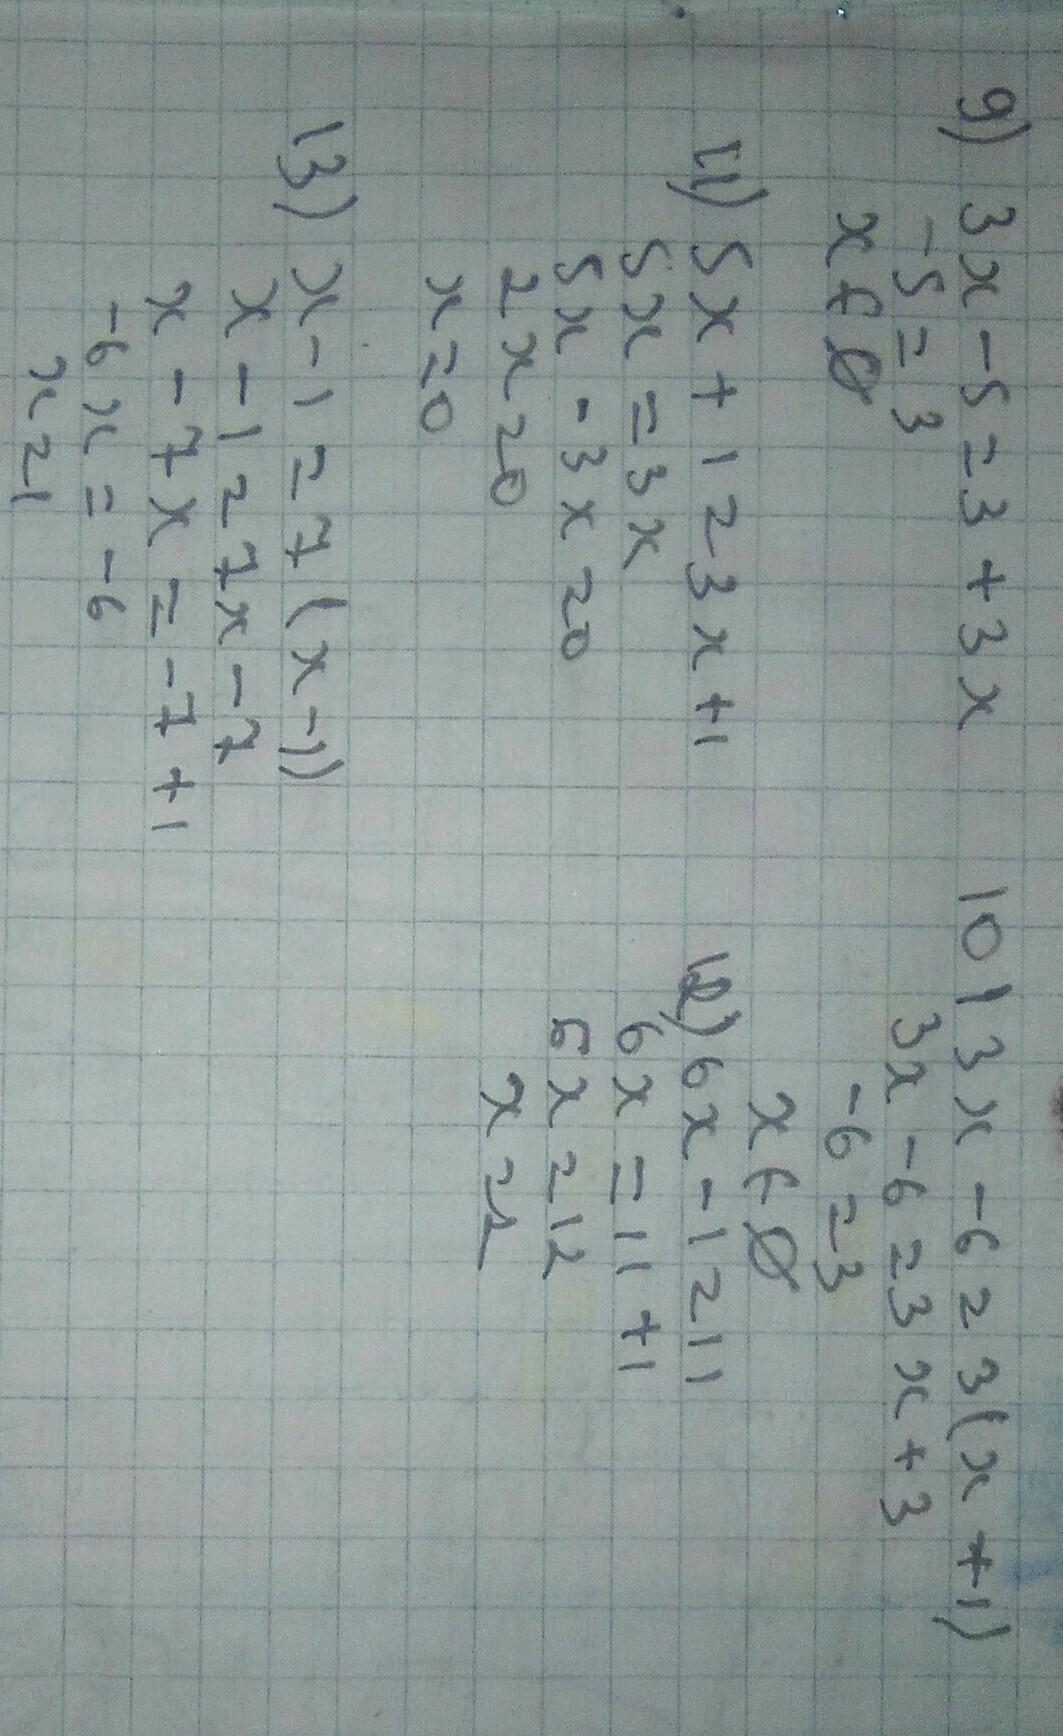 9) 3x-5=3+3x
-5=3
x∈∅
10) 3x-6=3(x+1)
3x-6=3x+3
-6=3
x∈∅
11) 5x+1=3x+1
5x=3x
5x-3x=0
2x=0
x=0
12) 6x-1=11
6x=11+1
6x=12
x=2
13) x-1=7(x-1)
x-1=7x-7
x-7x=-7+1
-6x=-6
x=1